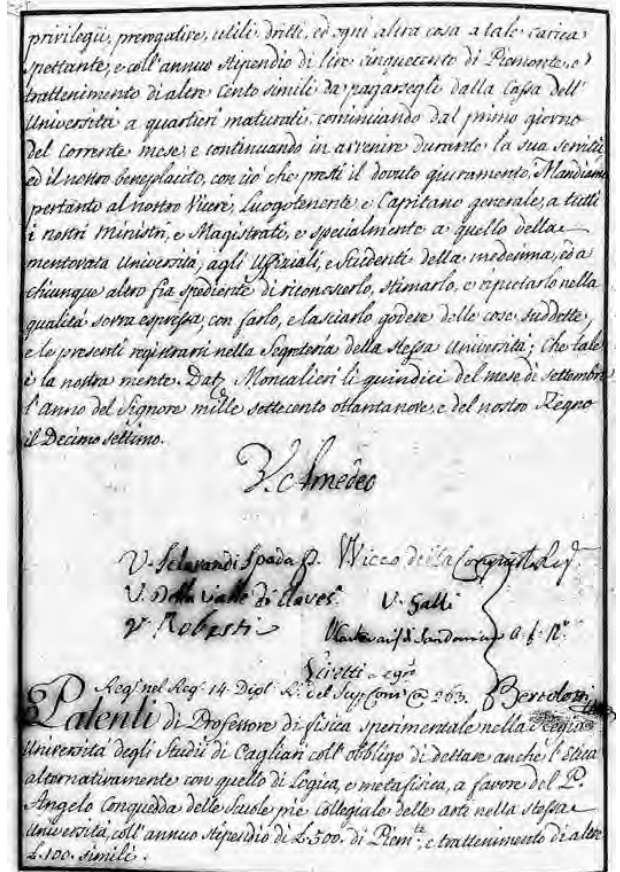 privilegii, prerogative, utili, dritti, ed ogni altra cosa a tale carica
spettante, e coll'annuo stipendio di lire cinquecento di Piemonte, e
trattenimento di altre cento simili da pagarsegli dalla Cassa dell'
Università a quartieri maturati, cominciando dal primo giorno
del corrente mese, e continuando in avvenire durante la sua servitù
ed il nostro beneplacito, con ciò che presti il dovuto giuramento, Mandiamo
pertanto al nostro Vicerè, Luogotenente e Capitano generale, a tutti
i nostri Ministri, e Magistrati, e specialmente a quello della
mentovata Università, agli Uffiziali, e Studenti della medesima, ed a
chiunque altro fia spediente di riconoscerlo, stimarlo, e riputarlo nella
qualità sovra espressa, con farlo, e lasciarlo godere delle cose suddette,
e le presenti registrarsi nella Segreteria della stessa Università; Che tale
è la nostra mente. Dat. Moncalieri li quindici del mese di settembre
l'anno del Signore mille settecento ottantanove, e del nostro Regno
il Decimo settimo.
V. Amedeo
V. Sclarandi Spada
V. Della Valle di Clavesᵃ
V. Galli
V. Roberti
Reg. nel Reg. 14. Dipl. 263.
Patenti di Professore di fisica sperimentale nella Regia
Università degli Studii di Cagliari coll'obbligo di dettare anche l'Etica
alternativamente con quello di Logica, e metafisica, a favore del P.
Angelo Conquedda delle Scuole pie Collegiale delle arti nella stessa
Università, coll'annuo stipendio di L. 500. di Piemᵗᵉ, e trattenimento di altre
L. 100. simili.